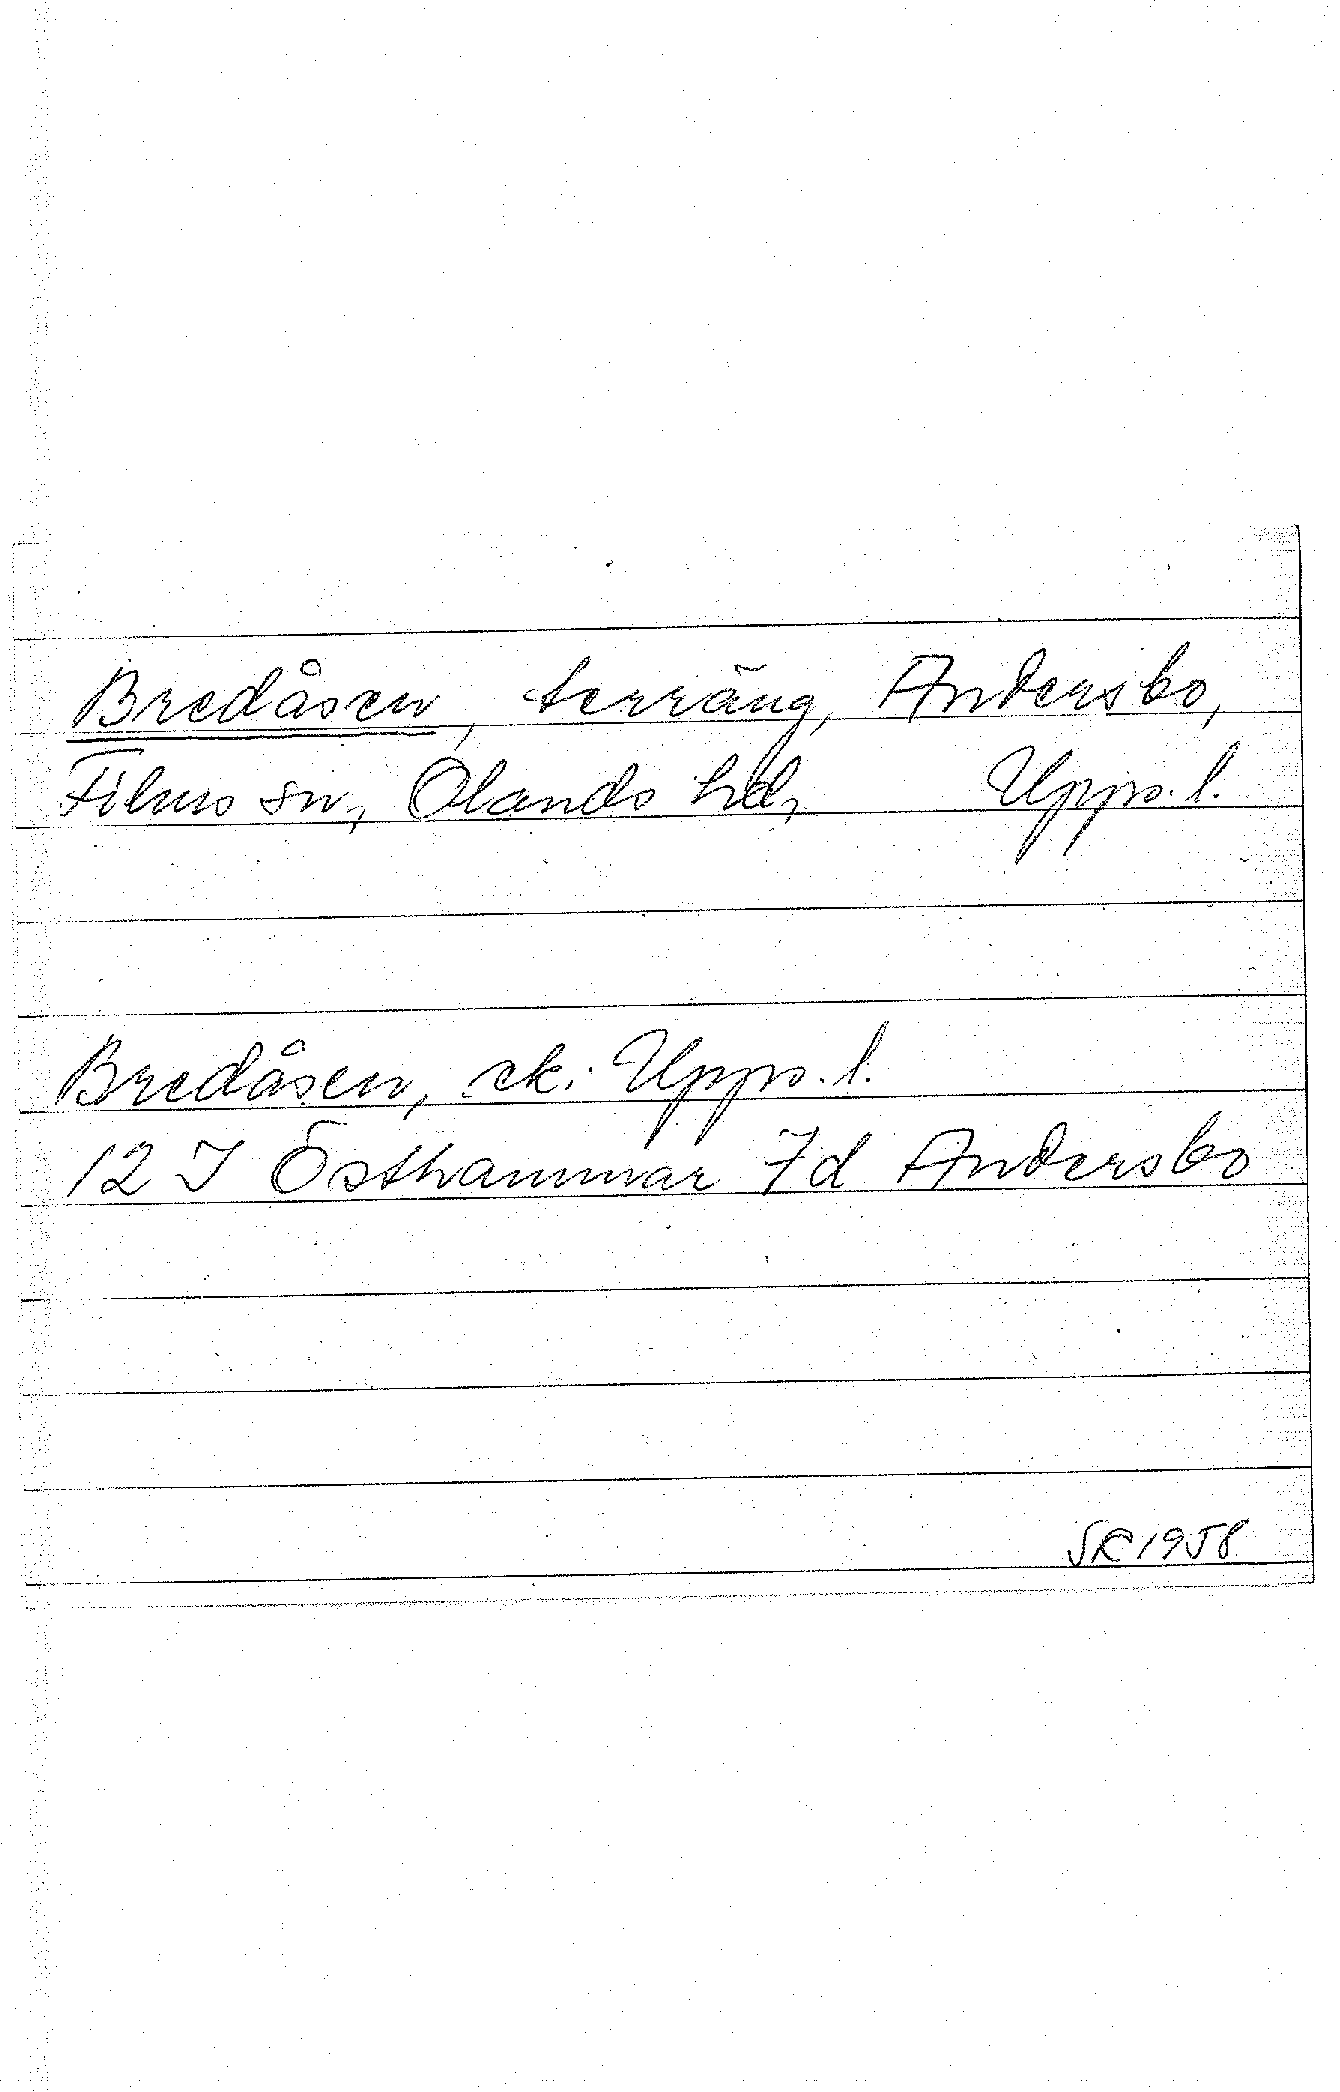 Bredåsen, terräng, Andersbo,
Films sn, Olands hd, Upps. l.
Bredåsen, ek. Upps. l.
12 I Östhammar 7d Andersbo
SR 1958